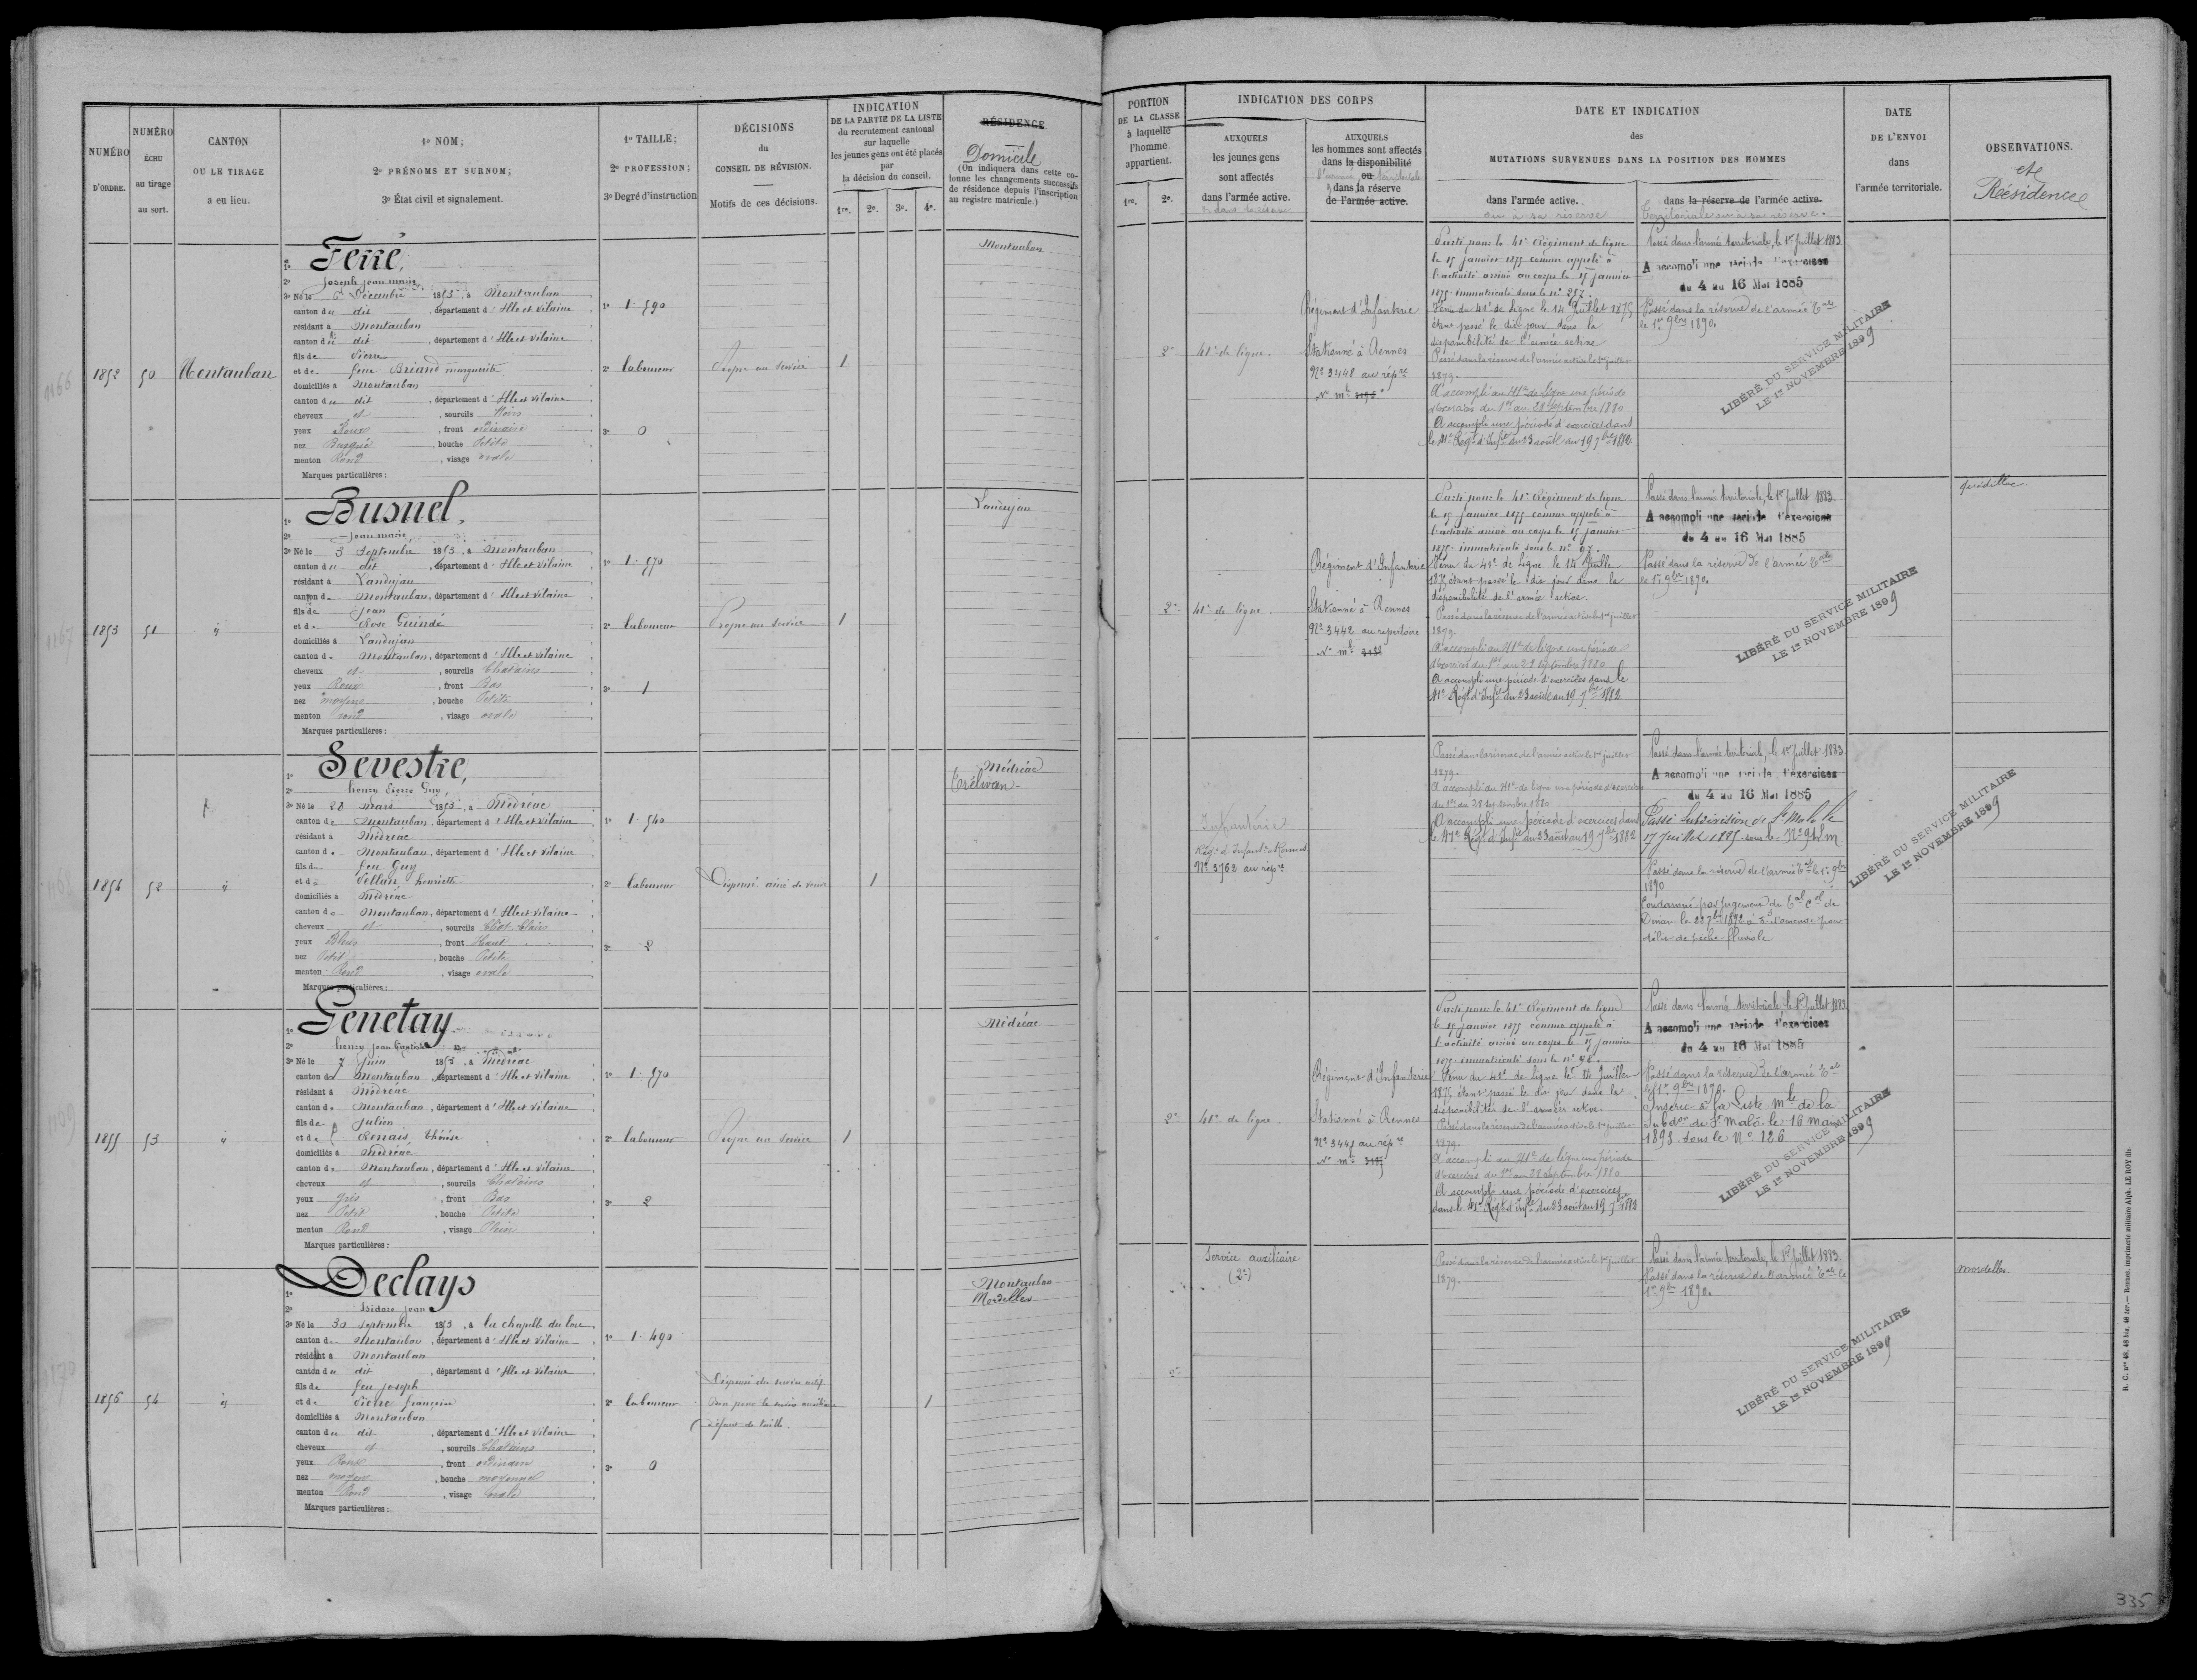 NUMÉRO D'ORDRE.
NUMÉRO ÉCHU au tirage au sort.
CANTON OU LE TIRAGE a eu lieu.
1º NOM;
2º PRÉNOMS ET SURNOM;
3º État civil et signalement.
1º TAILLE;
2º PROFESSION;
3º Degré d'instruction
DÉCISIONS du CONSEIL DE RÉVISION.
Motifs de ces décisions.
INDICATION
DE LA PARTIE DE LA LISTE
du recrutement cantonal
sur laquelle
les jeunes gens ont été placés
par
la décision du conseil.
1re. 2e. 3e. 4e.
RÉSIDENCE
Domicile
(On indiquera dans cette co-
lonne les changements successifs
de résidence depuis l'inscription
au registre matricule.)
PORTION
DE LA CLASSE
à laquelle
l'homme
appartient.
1re. 2e.
INDICATION DES CORPS
AUXQUELS
les jeunes gens
sont affectés
dans l'armée active.
AUXQUELS
les hommes sont affectés
dans la disponibilité
ou
l'armée territoriale
dans la réserve
de l'armée active.
DATE ET INDICATION
des
MUTATIONS SURVENUES DANS LA POSITION DES HOMMES
dans l'armée active.
ou à sa réserve
dans la réserve de l'armée active.
Territoriale ou à sa réserve.
DATE
DE L'ENVOI
dans
l'armée territoriale.
OBSERVATIONS.
et
Résidence
1166
1852
50
Montauban
1º Ferré,
2º Joseph jean marie
3º Né le 6 Décembre 1853, à Montauban
canton du dit, département d'Ille et Vilaine
résidant à Montauban
canton du dit, département d'Ille et Vilaine
fils de Pierre
et de feue Briand marguerite
domiciliés à Montauban
canton du dit, département d'Ille et Vilaine
cheveux et, sourcils Noirs
yeux Roux, front ordinaire
nez Busqué, bouche Petite
menton Rond, visage ovale
Marques particulières :
1º 1.590
2º laboureur
3º 0
Propre au service
1
Montauban
2e
41e de ligne.
Régiment d'Infanterie
Stationné à Rennes
Nº 3448 au répre
Nº mle
Parti pour le 41e Régiment de ligne
le 15 janvier 1875 comme appelé à
l'activité arrivé au corps le 15 janvier
1875 immatriculé sous le nº 257.
Venu du 41e de Ligne le 14 Juillet 1875
étant passé le dit jour dans la
disponibilité de l'armée active
Passé dans la réserve de l'armée active le 1er juillet
1879.
A accompli au 41e de Ligne une période
d'exercices du 1er au 28 septembre 1880
A accompli une période d'exercices dans
le 41e Régt d'Infie du 23 août au 19 7bre 1882
Passé dans l'armée territoriale, le 1er Juillet 1883.
A accompli une période d'exercices
du 4 au 16 Mai 1885
Passé dans la réserve de l'armée Tale
le 1er 9bre 1890.
LIBÉRÉ DU SERVICE MILITAIRE
LE 1er NOVEMBRE 1899
1167
1853
51
id
1º Busnel,
2º Jean marie
3º Né le 3 Septembre 1853, à Montauban
canton du dit, département d'Ille et Vilaine
résidant à Landujan
canton de Montauban, département d'Ille et Vilaine
fils de Jean
et de Rose Guindé
domiciliés à Landujan
canton de Montauban, département d'Ille et Vilaine
cheveux et, sourcils Chatains
yeux Roux, front Bas
nez moyen, bouche Petite
menton rond, visage ovale
Marques particulières :
1º 1.570
2º laboureur
3º 1
Propre au service
1
Landujan
2e
41e de ligne.
Régiment d'Infanterie
Stationné à Rennes
Nº 3442 au répertoire
Nº mle
Parti pour le 41e Régiment de ligne
le 15 janvier 1875 comme appelé à
l'activité arrivé au corps le 15 janvier
1875 immatriculé sous le nº 97.
Venu du 41e de Ligne le 14 Juillet
1875 étant passé le dit jour dans la
disponibilité de l'armée active.
Passé dans la réserve de l'armée active le 1er juillet
1879.
A accompli au 41e de ligne une période
d'exercices du 1er au 28 septembre 1880
A accompli une période d'exercices dans le
41e Régt d'Infie du 23 août au 19 7bre 1882
Passé dans l'armée territoriale, le 1er Juillet 1883.
A accompli une période d'exercices
du 4 au 16 Mai 1885
Passé dans la réserve de l'armée Tale
le 1er 9bre 1890.
LIBÉRÉ DU SERVICE MILITAIRE
LE 1er NOVEMBRE 1899
Quédillac.
1168
1854
52
id
1º Sevestre,
2º henry Pierre Guy
3º Né le 28 mars 1853, à Médréac
canton de Montauban, département d'Ille et Vilaine
résidant à Médréac
canton de Montauban, département d'Ille et Vilaine
fils de feu Guy
et de Vellan henriette
domiciliés à Médréac
canton de Montauban, département d'Ille et Vilaine
cheveux et, sourcils Chat. Clairs
yeux Bleus, front Haut
nez Petit, bouche Petite
menton Rond, visage ovale
Marques particulières :
1º 1.540
2º laboureur
3º 2
Dispensé ainé de veuve
1
Médréac
Trélivan
Infanterie
Régt d'Infantie Rennes
Nº 3762 au répre
Passé dans la réserve de l'armée active le 1er juillet
1879.
A accompli au 41e de ligne une période d'exercices
du 1er au 28 septembre 1880
A accompli une période d'exercices dans
le 41e Régt d'Infie du 23 août au 19 7bre 1882
Passé dans l'armée territoriale, le 1er Juillet 1883.
A accompli une période d'exercices
du 4 au 16 Mai 1885
Passé Subdivision de St Malo le
17 Juillet 1885 sous le
Passé dans la réserve de l'armée Tale le 1er 9bre
1890
Condamné par jugement du Tal Cel de
Dinan le 22 7bre 1892 à d'amende pour
délit de pêche fluviale
LIBÉRÉ DU SERVICE MILITAIRE
LE 1er NOVEMBRE 1899
1169
1855
53
id
1º Genetay
2º henry jean Baptiste
3º Né le 7 Juin 1853, à Médréac
canton de Montauban, département d'Ille et Vilaine
résidant à Médréac
canton de Montauban, département d'Ille et Vilaine
fils de Julien
et de Renais Thérèse
domiciliés à Médréac
canton de Montauban, département d'Ille et Vilaine
cheveux et, sourcils Chatains
yeux Gris, front Bas
nez Petit, bouche Petite
menton Rond, visage Plein
Marques particulières :
1º 1.570
2º laboureur
3º 2
Propre au service
1
Médréac
2e
41e de ligne
Régiment d'Infanterie
Stationné à Rennes
Nº 3441 au répre
Nº mle
Parti pour le 41e Régiment de ligne
le 15 janvier 1875 comme appelé à
l'activité arrivé au corps le 15 janvier
1875 immatriculé sous le nº 98.
Venu du 41e de Ligne le 14 Juillet
1875 étant passé le dit jour dans la
disponibilité de l'armée active
Passé dans la réserve de l'armée active le 1er juillet
1879.
A accompli au 41e de ligne une période
d'exercices du 1er au 28 septembre 1880
A accompli une période d'exercices
dans le 41e Régt d'Infie du 23 août au 19 7bre 1882
Passé dans l'armée territoriale, le 1er Juillet 1883
A accompli une période d'exercices
du 4 au 16 Mai 1885
Passé dans la réserve de l'armée Tale
le 1er 9bre 1890.
Inscrit à la Liste mle de la
Subdon de St Malo le 16 mars
1893 sous le Nº 126
LIBÉRÉ DU SERVICE MILITAIRE
LE 1er NOVEMBRE 1899
1170
1856
54
id
1º Declays
2º Isidore jean
3º Né le 30 Septembre 1853, à la chapelle du lou
canton de Montauban, département d'Ille et Vilaine
résidant à Montauban
canton du dit, département d'Ille et Vilaine
fils de feu Joseph
et de françoise
domiciliés à Montauban
canton du dit, département d'Ille et Vilaine
cheveux et, sourcils Chatains
yeux Roux, front ordinaire
nez moyen, bouche moyenne
menton Rond, visage ovale
Marques particulières :
1º 1.490
2º laboureur
3º 0
Dispensé du service actif
Bon pour le service auxiliaire
défaut de taille.
1
Montauban
Mordelles
2e
Service auxiliaire
(2e)
Passé dans la réserve de l'armée active le 1er juillet
1879.
Passé dans l'armée territoriale, le 1er Juillet 1883.
Passé dans la réserve de l'armée Tale le
1er 9bre 1890.
LIBÉRÉ DU SERVICE MILITAIRE
LE 1er NOVEMBRE 1899
Mordelles.
R. C. nos 48, 48 bis, 48 ter. — Rennes, imprimerie militaire Alph. LE ROY fils
335